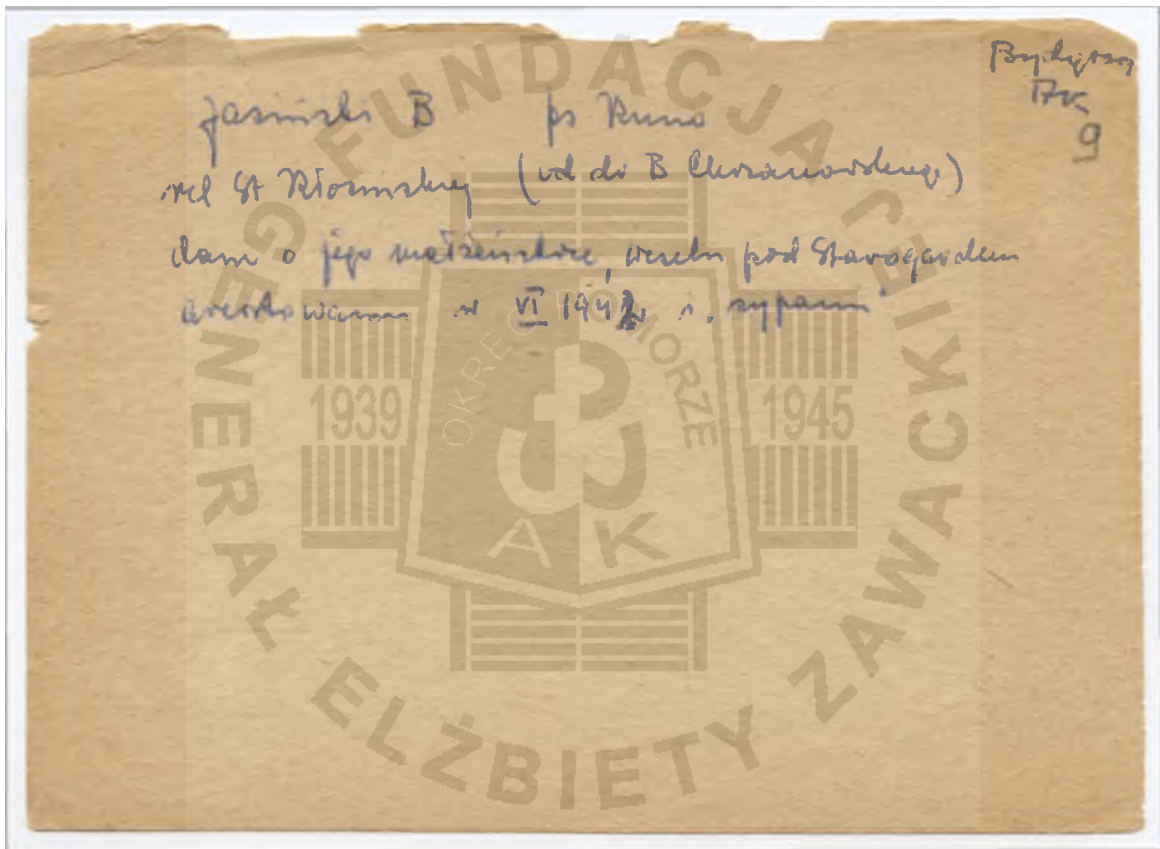 Bydgoszcz
9
Jasiński B ps Runo
rel St Kłosińskiej (od dr B Chrzanowskiego)
dane o jego małżeństwie, weselu pod Starogardem
aresztowaniu w VI 194 r. sypaniu
FUNDACJA GENERAŁ ELŻBIETY ZAWACKIEJ
OKRĘG POMORZE
1939 1945
AK